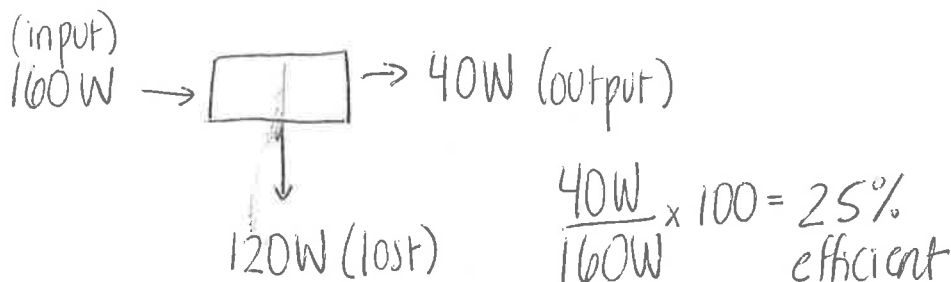 (input)
160W → → 40W (output)
120W (lost)
40W/160W x 100 = 25%
efficient